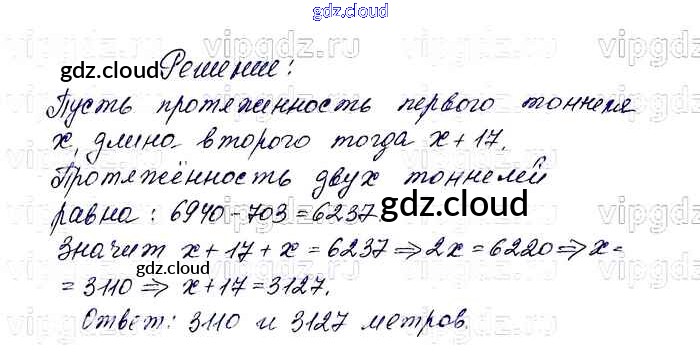 gdz.cloud
vipgdz.ru
gdz.cloud Решение:
Пусть протяженность первого тоннеля
x, длина второго тогда x + 17.
Протяжённость двух тоннелей
равна: 6940-703=6237
gdz.cloud
Значит x + 17 + x = 6237 ⇒ 2x = 6220 ⇒ x =
gdz.cloud
= 3110 ⇒ x + 17 = 3127.
Ответ: 3110 и 3127 метров.